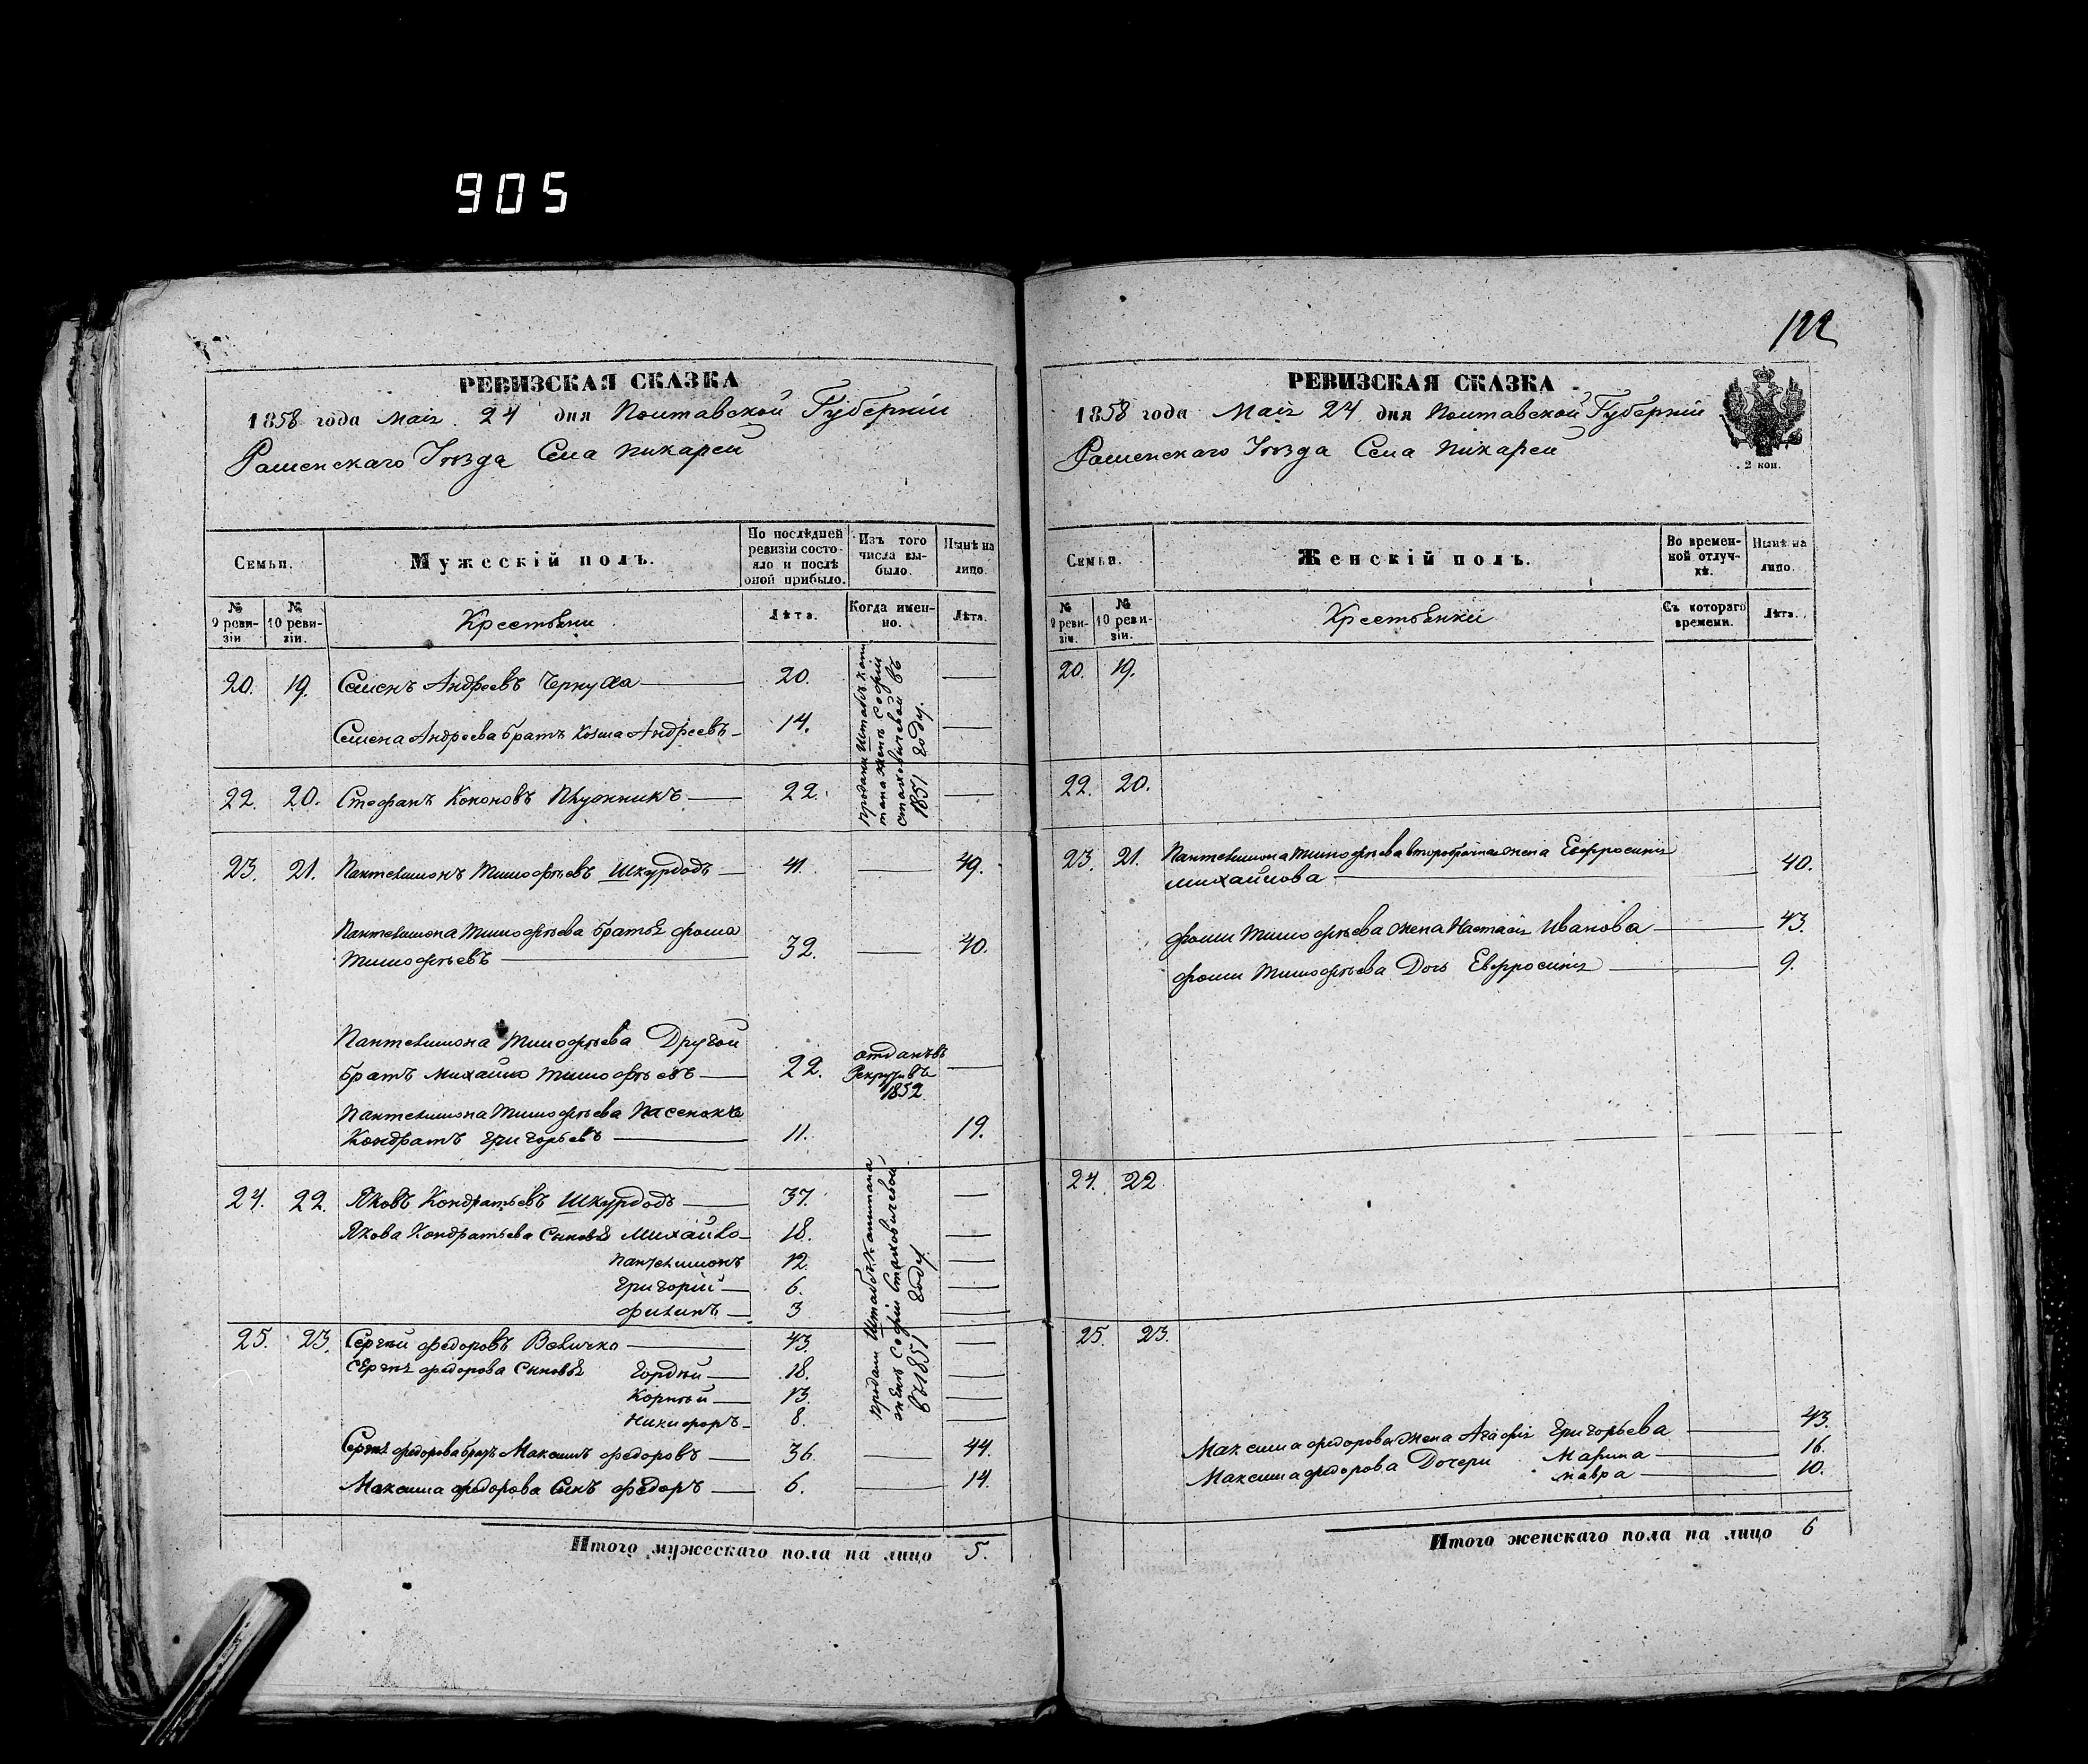 905
122
РЕВИЗСКАЯ СКАЗКА
1858 года Маія 24 дня Полтавской Губерніи
Ромѣнскаго Уѣзда Села Пикарей
Семьи.
Мужескій полъ.
По послѣдней ревизіи состояло и послѣ оной прибыло.
Изъ того числа выбыло.
Нынѣ на лицо.
№ 9 ревизіи
№ 10 ревизіи.
Крестьяни
Лѣта.
Когда именно.
Лѣта.
20. 19. Семенъ Андреевъ Чернуха 20.
Семена Андреева братъ Козма Андреевъ 14.
22. 20. Стефанъ Кононовъ 22.
проданы Штабсъ Капитана женѣ Софіи Стаховичевой въ 1851 году.
23. 21. Пантелимонъ Тимофѣевъ Шкурдодъ 41. 49.
Пантелимона Тимофѣева братья Фома
Тимофѣевъ 32. 40.
Пантелимона Тимофѣева Другой
братъ Михайло Тимофѣевъ 22. отданъ въ Рекруты въ 1852.
Пантелимона Тимофѣева Пасенокъ
Кондратъ Григорьевъ 11. 19.
24. 22. Яковъ Кондратьевъ Шкурдодъ 37.
Якова Кондратьева Сыновья Михайло 18.
Пантелимонъ 12.
Григорій 6.
Филипъ 3
25. 23. Сергѣй Федоровъ Величко 43.
Сергѣя Федорова Сыновья Гордѣй 18.
Корнѣй 13.
Никифоръ 8.
проданы Штабсъ Капитана женѣ Софіи Стаховичевой въ 1851 году.
Сергѣя Федорова братъ Максимъ Федоровъ 36. 44.
Максима Федорова Сынъ Федоръ 6. 14.
Итого мужескаго пола на лицо 5.
РЕВИЗСКАЯ СКАЗКА
1858 года Маія 24 дня Полтавской Губерніи
Ромѣнскаго Уѣзда Села Пикарей
2 коп.
Семьи.
Женскій полъ.
Во временной отлучкѣ.
Нынѣ на лицо.
№ 9 ревизіи.
№ 10 ревизіи.
Крестьянки
Съ котораго времени.
Лѣта.
20. 19.
22. 20.
23. 21. Пантелимона Тимофѣева второбрачная жена Евфросинія
Михайлова 40.
Фомы Тимофѣева жена Настасія Иванова 43.
Фомы Тимофѣева Дочь Евфросинія 9.
24. 22
25. 23.
Максима Федорова жена Агафія Григорьева 43.
Максима Федорова Дочери Марина 16.
Мавра 10.
Итого женскаго пола на лицо 6